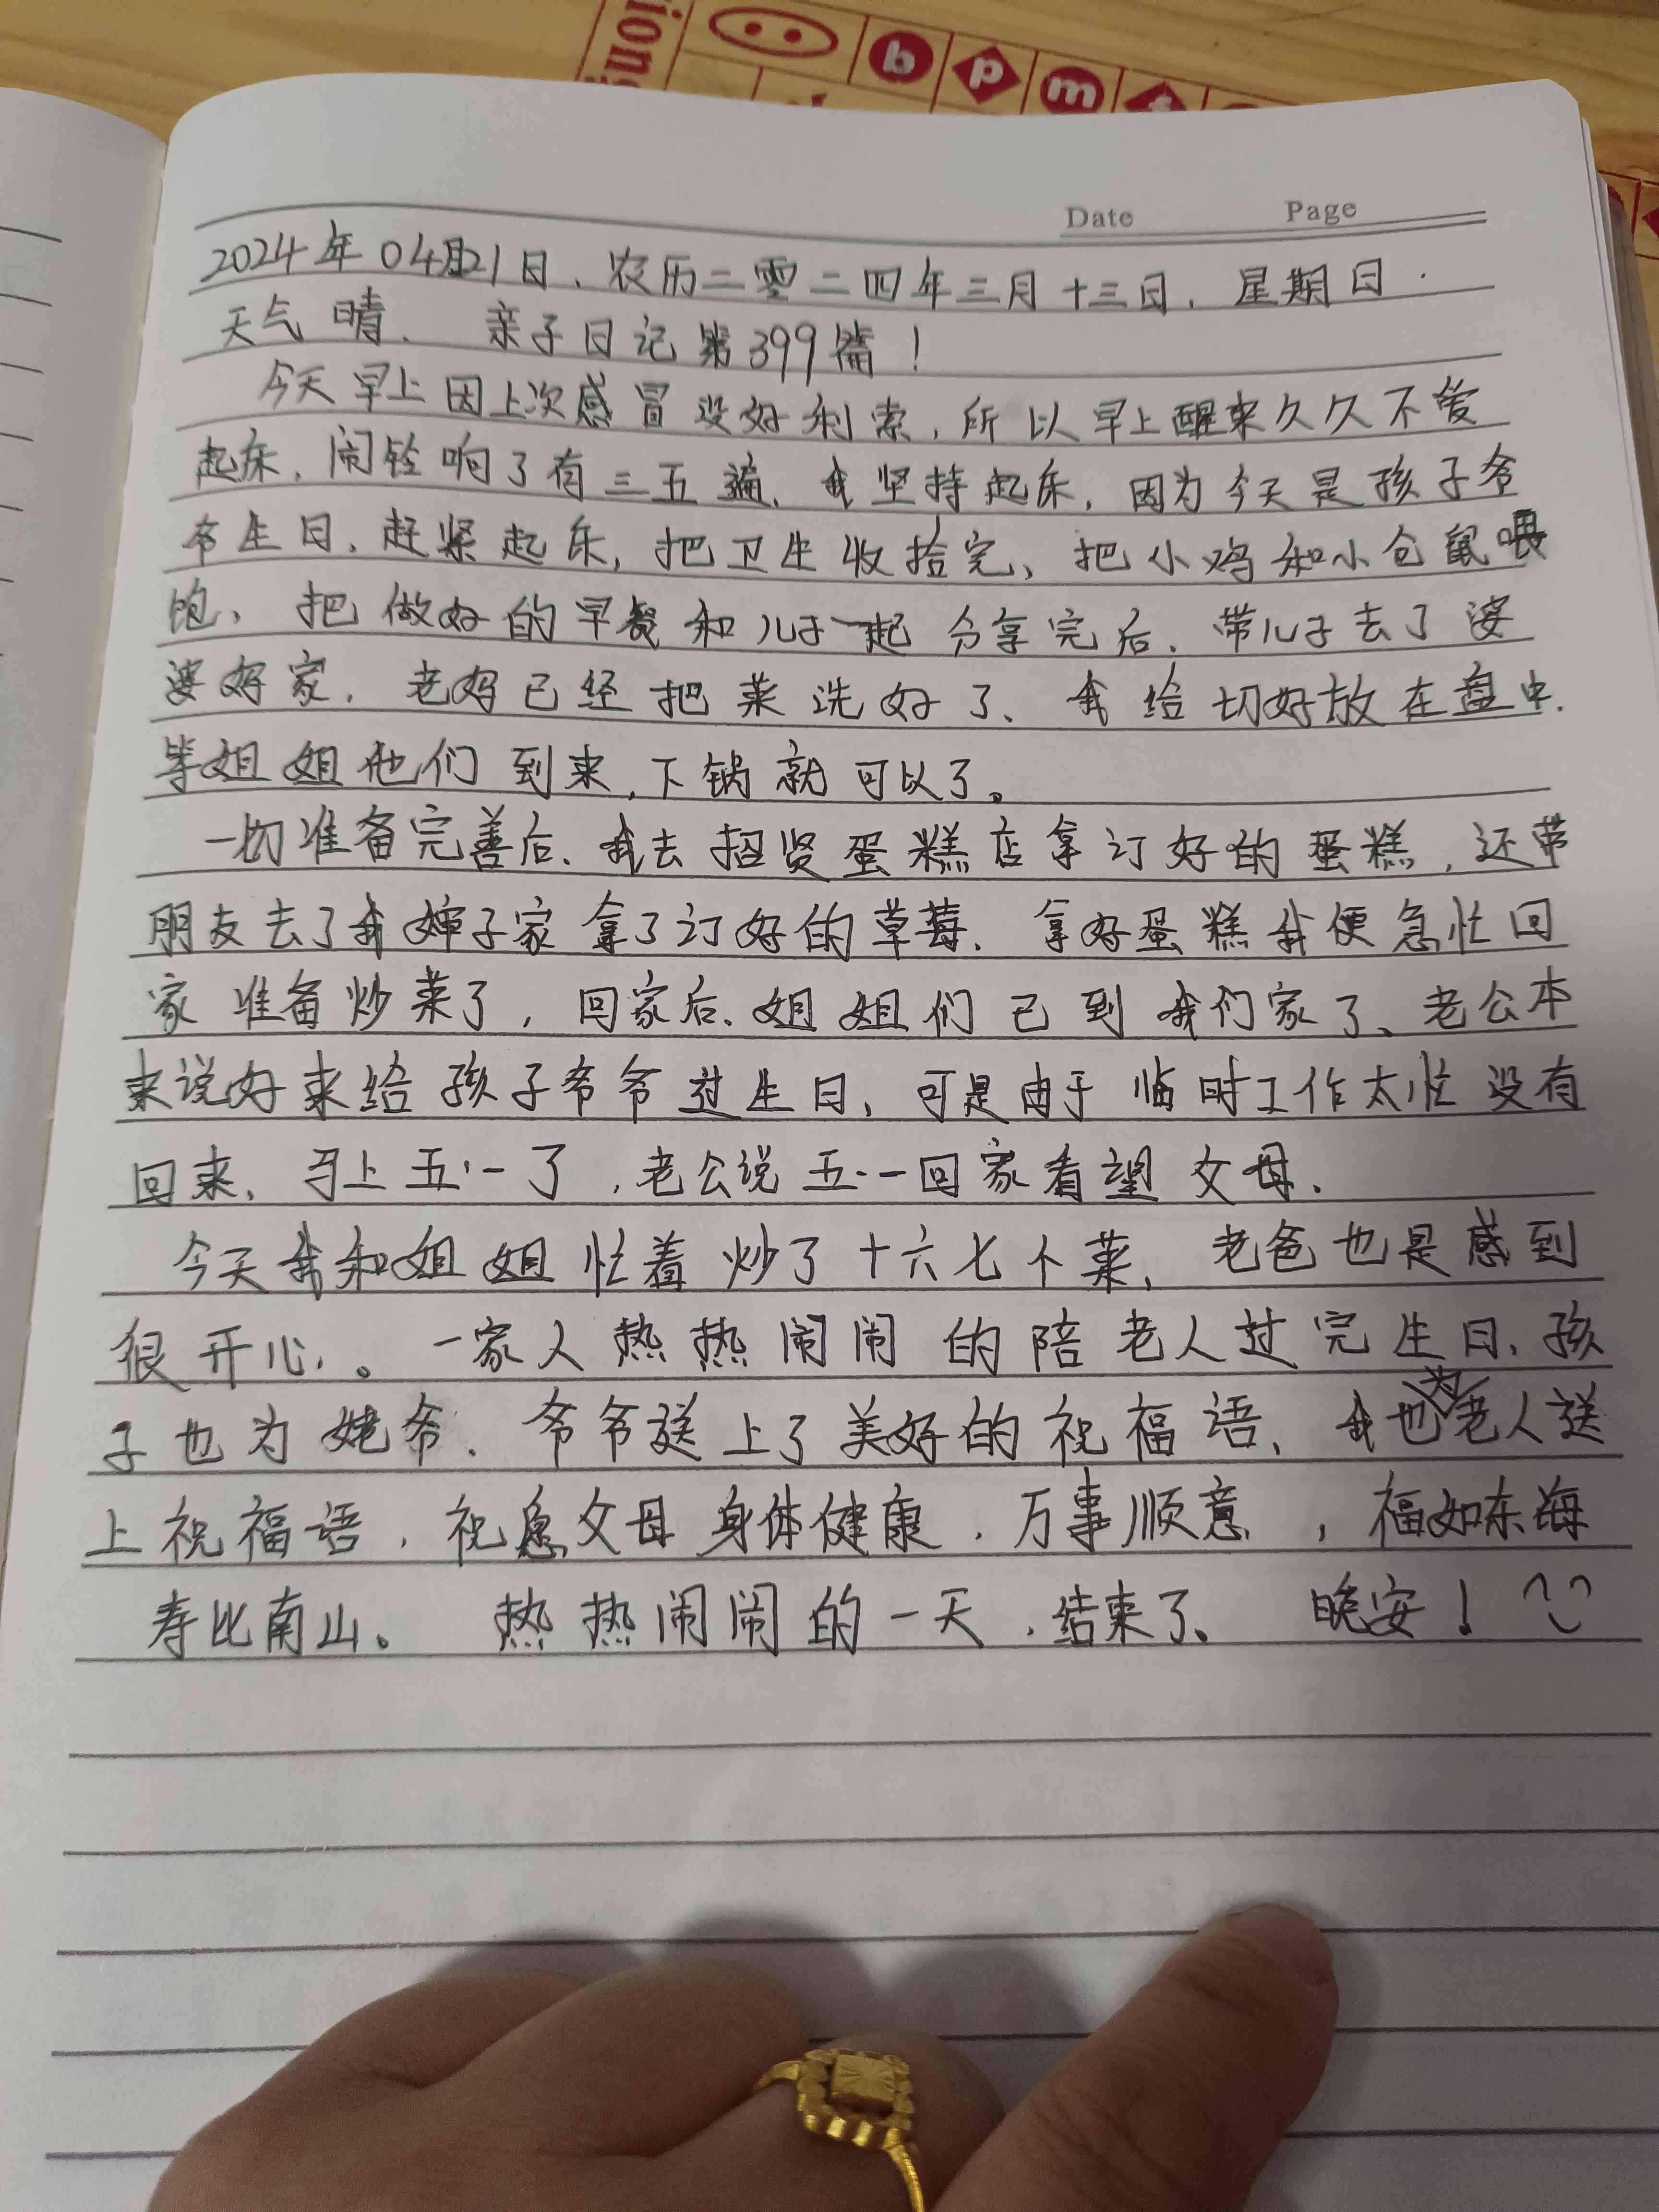 iong
b p m f
Date Page
2024年04月21日、农历二零二四年三月十三日、星期日.
天气晴、 亲子日记第399篇！
今天早上因上次感冒没好利索,所以早上醒来久久不爱
起床,闹铃响了有三五遍、我坚持起床,因为今天是孩子爷
爷生日、赶紧起床,把卫生收拾完、把小鸡和小仓鼠喂
饱、把做好的早餐和儿子一起分享完后、带儿子去了婆
婆好家,老妈已经把菜洗好了、我给切好放在盘中.
等姐姐他们到来,下锅就可以了。
一切准备完善后、我去招贤蛋糕店拿订好的蛋糕,还带
朋友去了我婶子家拿了订好的草莓、拿好蛋糕我便急忙回
家准备炒菜了,回家后、姐姐们已到我们家了、老公本
来说好来给孩子爷爷过生日、可是由于临时工作太忙没有
回来、马上五·一了,老公说五·一回家看望父母.
今天我和姐姐忙着炒了十六七个菜、老爸也是感到
很开心。一家人热热闹闹的陪老人过完生日、孩
子也为姥爷、爷爷送上了美好的祝福语、我也为老人送
上祝福语,祝愿父母身体健康,万事顺意,福如东海
寿比南山。 热热闹闹的一天,结束了、 晚安！